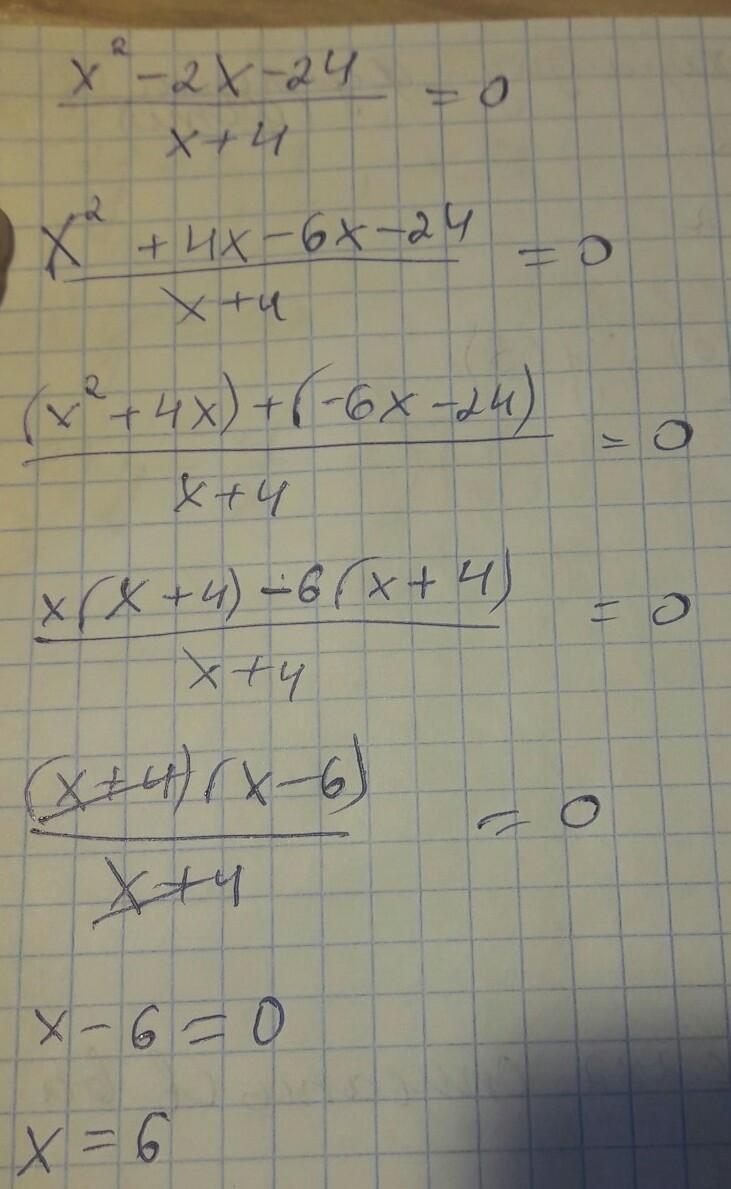 x² - 2x - 24
x + 4
= 0
x² + 4x - 6x - 24
x + 4
= 0
(x² + 4x) + (-6x - 24)
x + 4
= 0
x(x + 4) - 6(x + 4)
x + 4
= 0
(x + 4)(x - 6)
x + 4
= 0
x - 6 = 0
x = 6